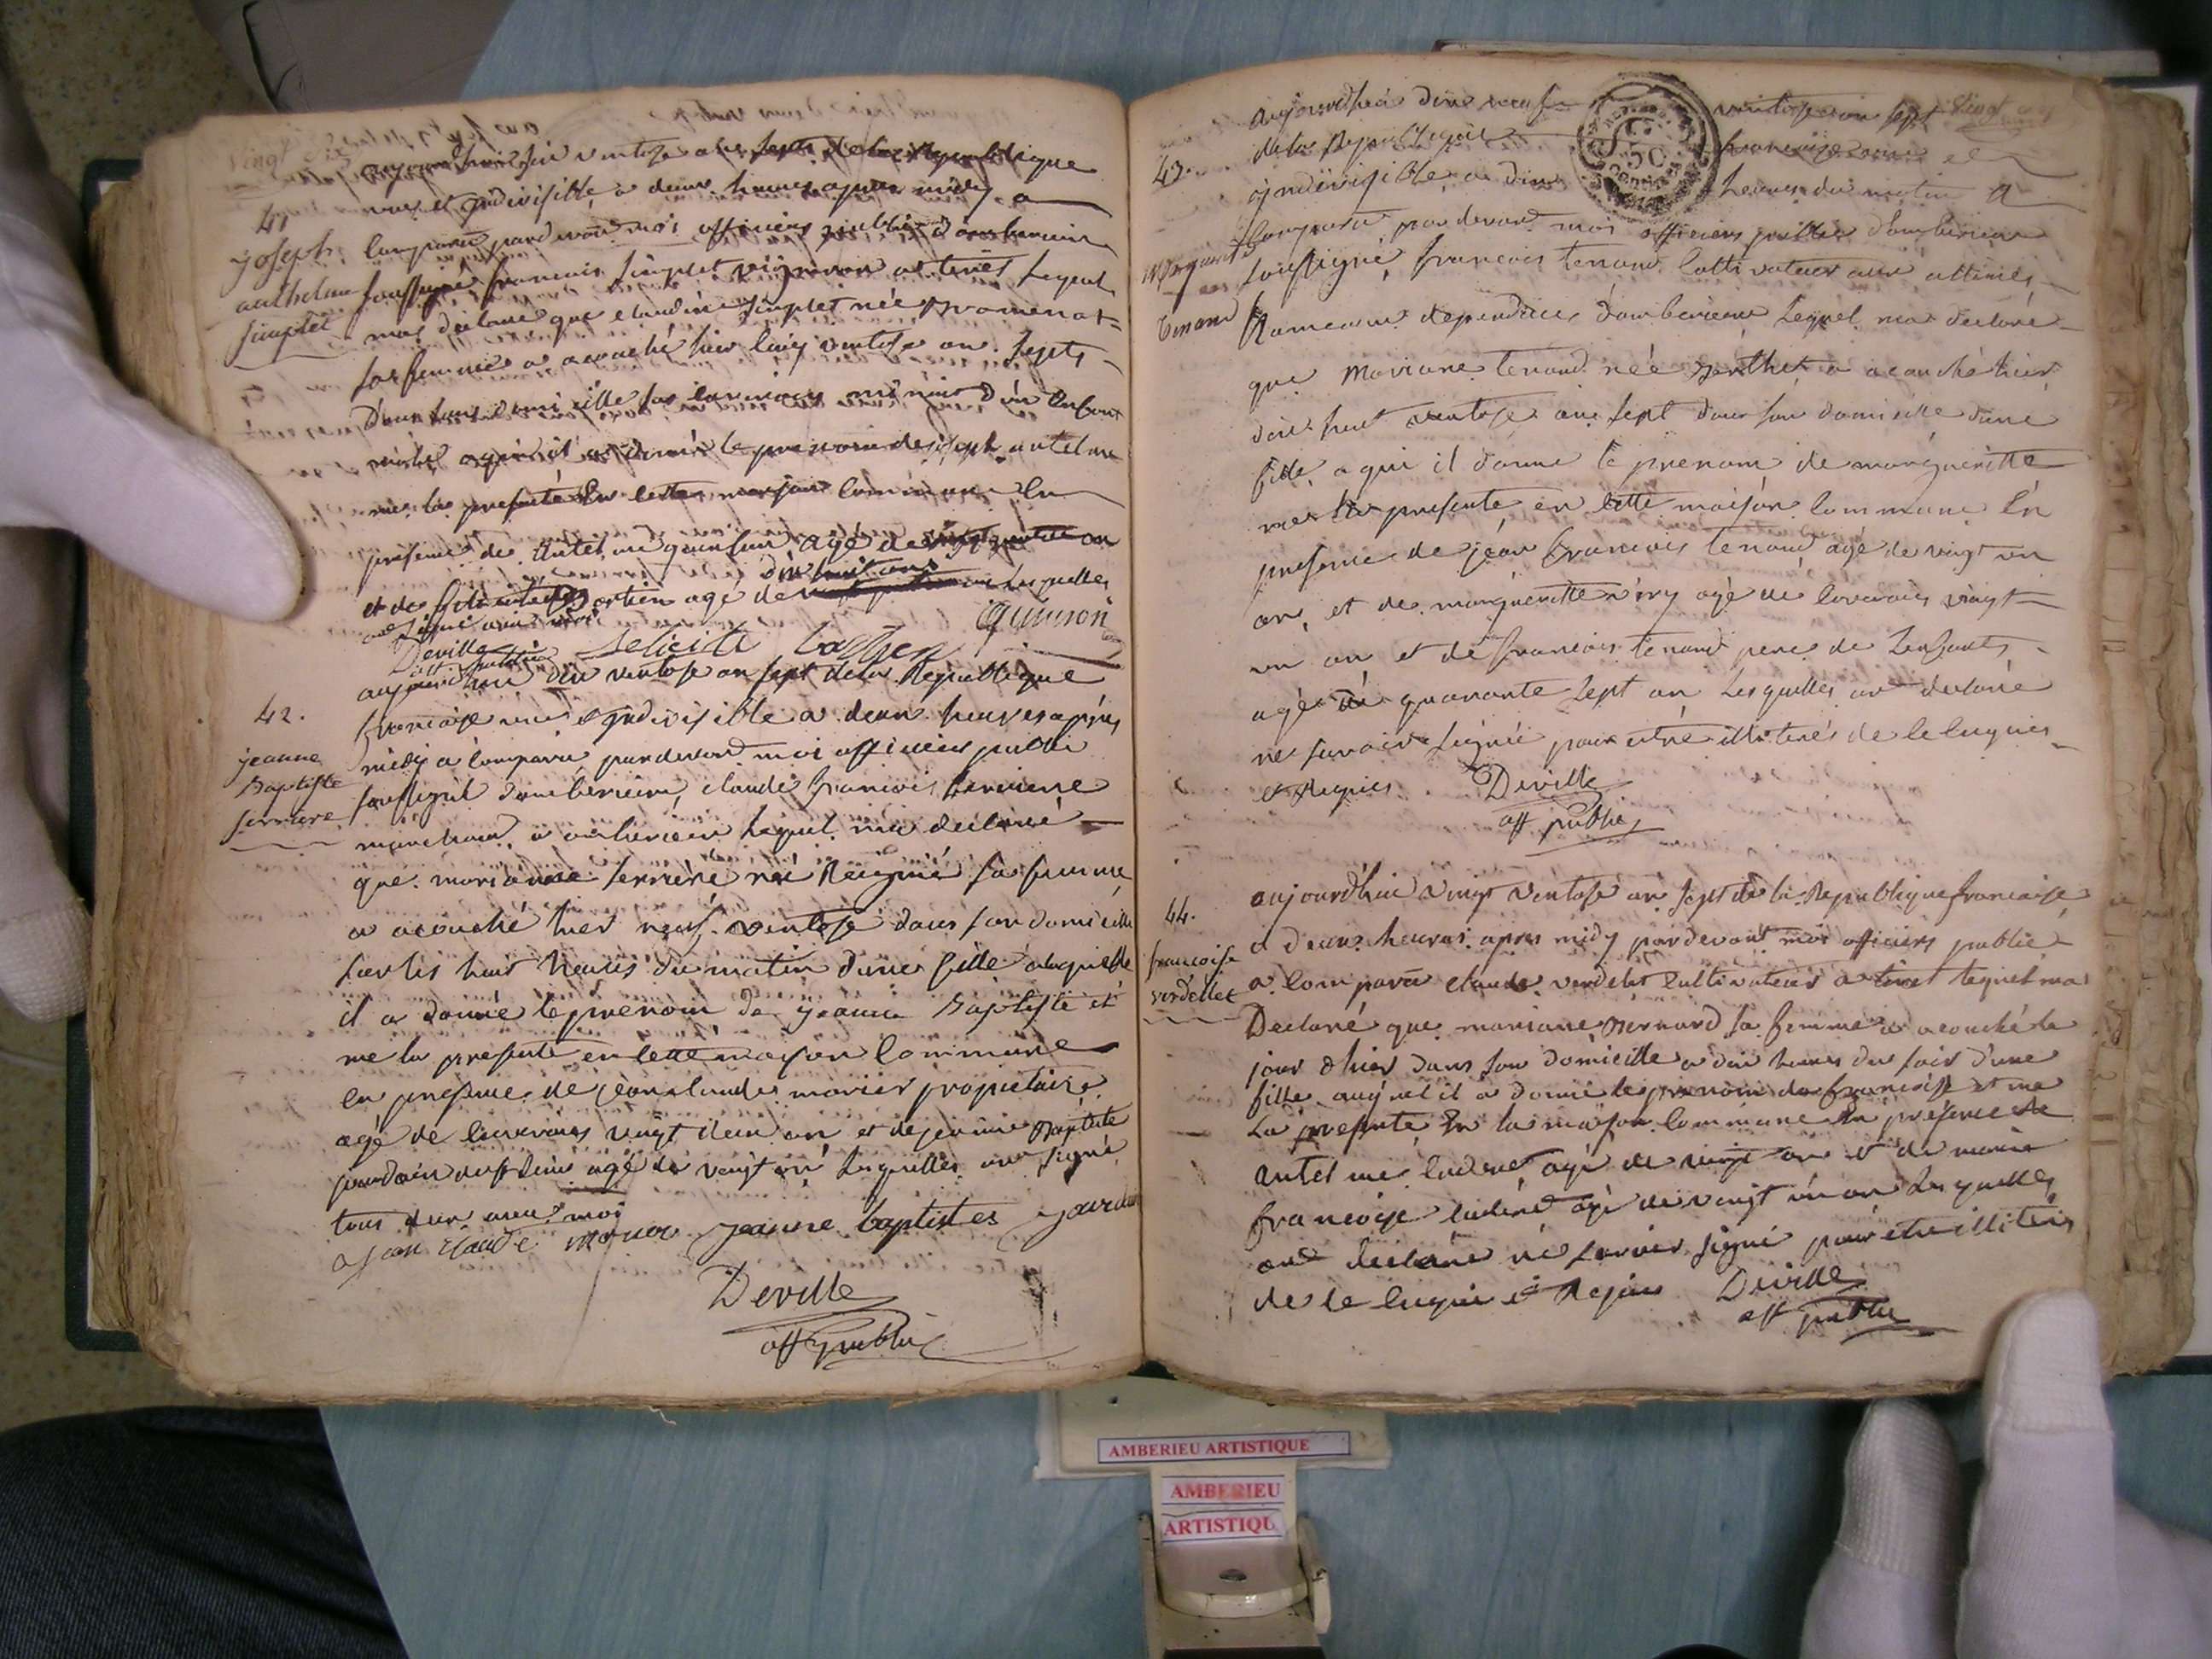 41
joseph
anthelme
simplet
aujourdhui six ventose an sept de la Republique
une et indivisible a deux heures apres midy a
comparu pardevant moi officiers public d'amberieux
soussigné francois simplet vigneron a tiret lequel
mas declaré que claudine simplet née
sa femme a acouché hier cinq ventose an sept
dans son domicille
a qui il a donné le prenom de joseph antelme
me la presenté en cette maison commune En
presence de antelme quinson agé de
dix huit ans
et de agé de lesquelles
on signé avec moi
Deville
off public
felicité
quinson
42.
jeanne
Baptiste
ferriere
aujourdhui dix ventose an sept de la Republique
francaise une et indivisible a deux heures apres
midy a comparu pardevant moi officiers public
soussigné damberieux, claude francois ferriere
marchand a amberieux lequel ma declaré
que marianne ferriere née sa femme
a acouché hier neuf ventose dans son domicille
sur les huit heures du matin d'une fille a laquelle
il a donné le prenom de jeanne Baptiste et
me la presenté en cette maison commune
en presence de jean claude morier propriétaire
agé de environs vingt deux an et de jeanne Baptiste
jourdain agé de vingt an lesquelles on signé
tous deux avec moi
jean claude morier jeanne baptistes jourdain
Deville
off public
43.
Marguerite
tenand
aujourdhui dixneuf ventose an sept
de la Republique francaise une et
50
indivisible a dix heures du matin a
comparu pardevant moi officiers public d'amberieux
soussigné, francois tenand cultivateur aux allimes
hameau dependances d'amberieux lequel ma declaré
que Mariane tenand née a acouché hier
dix huit ventose an sept dans son domicille d'une
fille, a qui il donne le prenom de margueritte
me la presenté en cette maison commune En
presence de jean francois tenand agé de vingt un
an, et de margueritte agé de environs vingt
un an et de francois tenand pere de Lenfants
agé de quarante sept an lesquelles on declaré
ne savoir signée pour être illiterés de le luquies
et Requies
Deville
off public
44.
francoise
verdellet
aujourd'hui vingt ventose an sept de la Republique francaise
a deux heures apres midy pardevant moi officiers public
a comparu claude verdelet cultivateur a tiret lequel ma
Declaré que mariane Bernard sa femme a acouché le
jour d'hier dans son domicille a dix heures du soir d'une
fille auquel il a donné le prenom de francoise et me
La presenté En la maison commune En présence de
antelme agé de vingt an et de marie
francoise agé de vingt un an lesquelles
ont declaré ne savoir signé pour être illiterés
de le luquie et Requis
Deville
off public
AMBERIEU ARTISTIQUE
AMBERIEU
ARTISTIQU